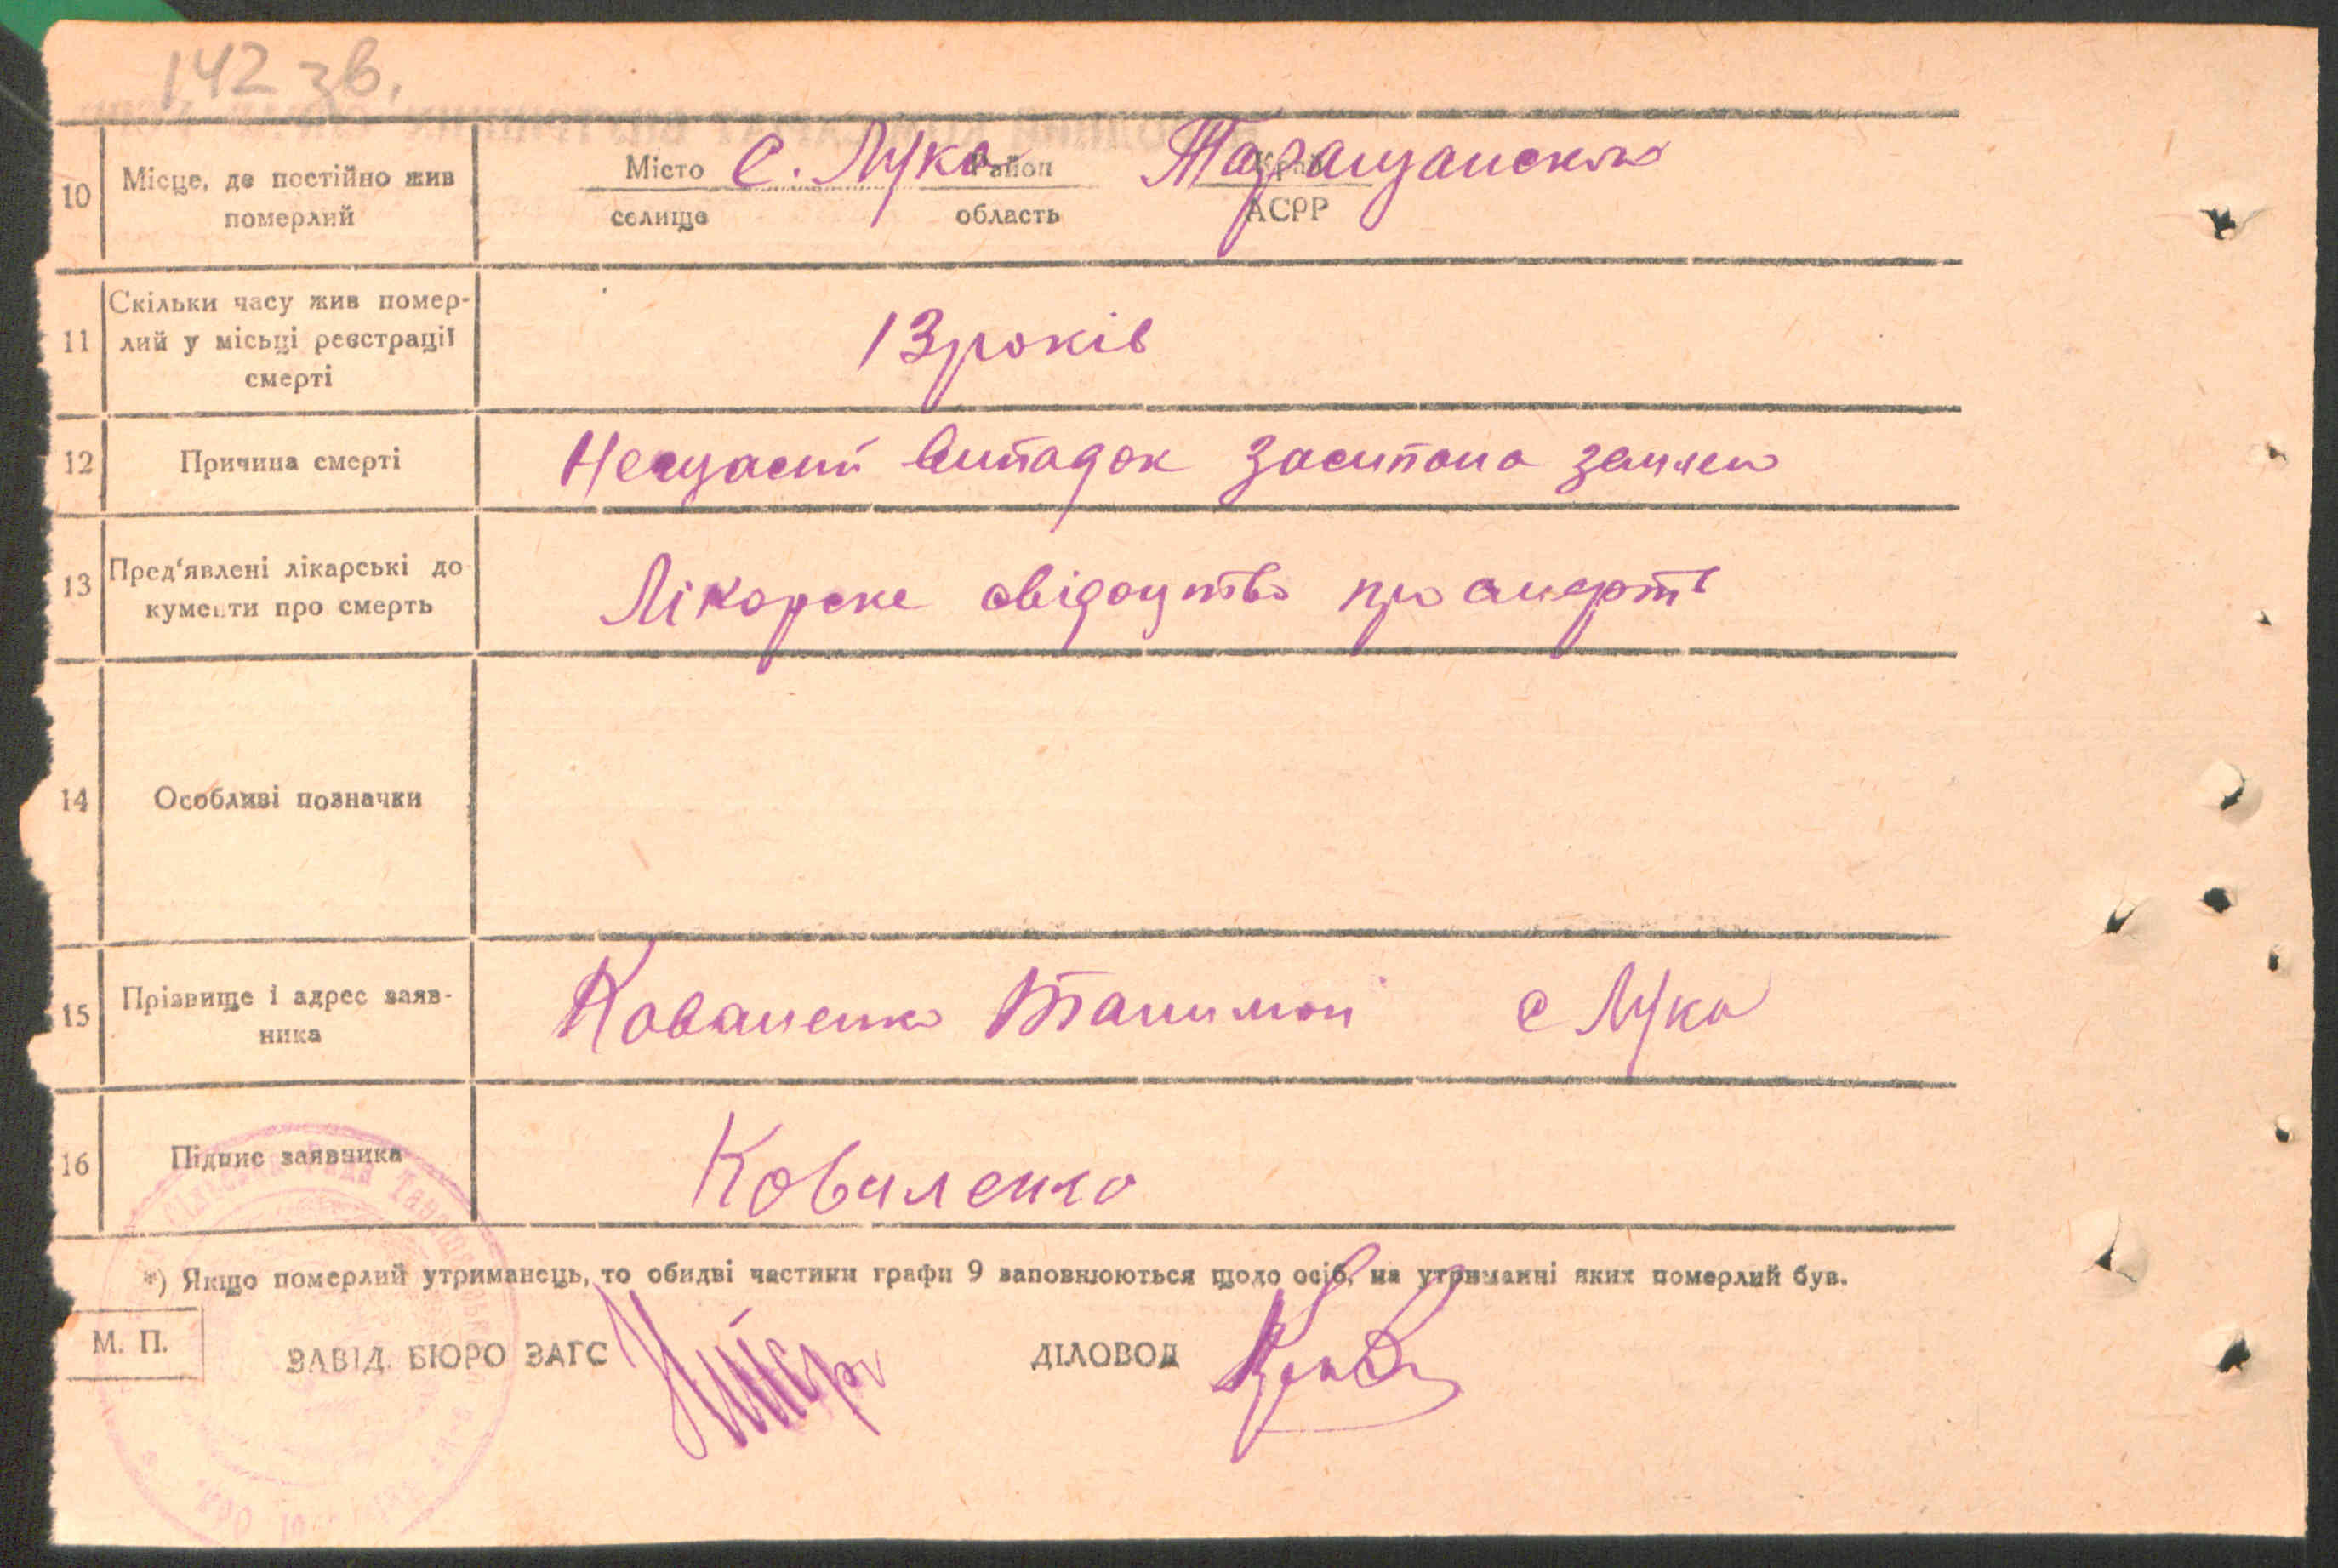 142 зв.
10 Місце, де постійно жив померлий
Місто С. Лука Район Таращанском Край
селище область АСРР
11 Скільки часу жив помер-
лий у місьці реєстрації
смерті
13 років
12 Причина смерті Нещасний випадок засипана землею
13 Пред'явлені лікарські до
кументи про смерть
Лікарске свідоцтво про смерть
14 Особливі позначки
15 Прізвище і адрес заяв-
ника
Коваленко с Лука
16 Підпис заявника Коваленко
*) Якщо померлий утриманець, то обидві частини графи 9 заповнюються щодо осіб, на утриманні яких померлий був.
М. П.
ЗАВІД. БЮРО ЗАГС ДІЛОВОД